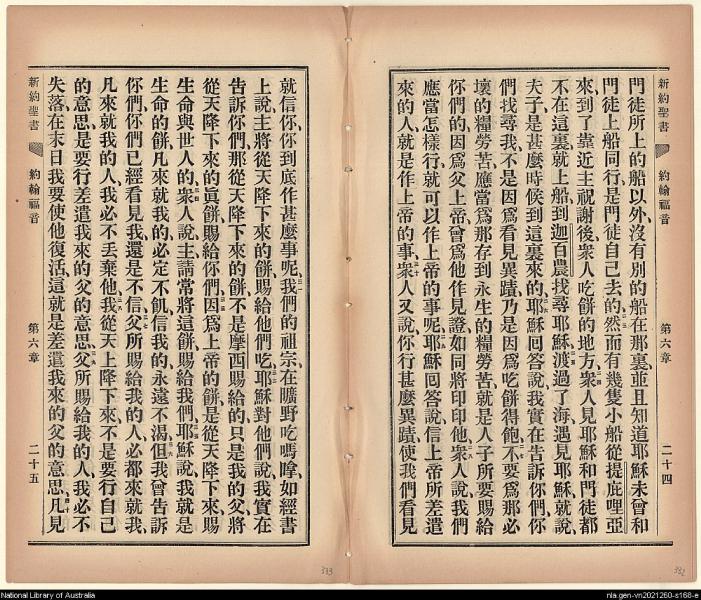 新約聖書 約翰福音 第六章 二十四
門徒所上的船以外、沒有別的船在那裏、並且知道耶穌未曾和
門徒上船同行、是門徒自己去的、然而有幾隻小船從提庇哩亞
來、到了靠近主祝謝後、衆人吃餅的地方、衆人見耶穌和門徒都
不在這裏、就上船到迦百農找尋耶穌、渡過了海遇見耶穌、就說、
夫子是甚麼時候到這裏來的、耶穌回答說、我實在告訴你們、你
們找尋我、不是因爲看見異蹟、乃是因爲吃餅得飽、不要爲那必
壞的糧勞苦、應當爲那存到永生的糧勞苦、就是人子所要賜給
你們的、因爲父上帝曾爲他作見證、如同將印印他、衆人說、我們
應當怎樣行、就可以作上帝的事呢、耶穌回答說、信上帝所差遣
來的人、就是作上帝的事、衆人又說、你行甚麼異蹟、使我們看見
就信你、你到底作甚麼事呢、我們的祖宗在曠野吃嗎嗱、如經書
上說、主將從天降下來的餅、賜給他們吃、耶穌對他們說、我實在
告訴你們、那從天降下來的餅、不是摩西賜給的、只是我的父、將
從天降下來的眞餅、賜給你們、因爲上帝的餅、是從天降下來、賜
生命與世人的、衆人說、主請常將這餅賜給我們、耶穌說、我就是
生命的餅、凡來就我的、必定不飢、信我的、永遠不渴、但我曾告訴
你們、你們已經看見我、還是不信、父所賜給我的人、必都來就我、
凡來就我的人、我必不丟棄他、我從天上降下來、不是要行自己
的意思、是要行差遣我來的父的意思、父所賜給我的人、我必不
失落、在末日我要使他復活、這就是差遣我來的父的意思、凡見
新約聖書 約翰福音 第六章 二十五
National Library of Australia
nla.gen-vn2021260-s168-e